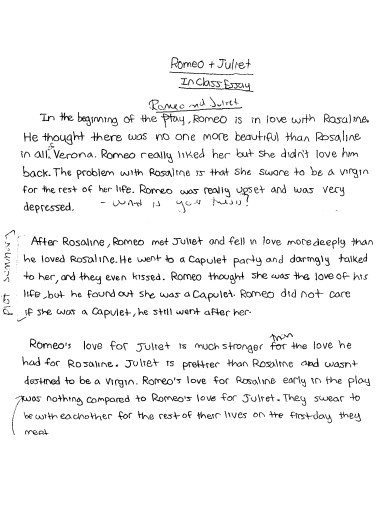 Romeo + Juliet
In Class Essay
Romeo and Juliet
In the beginning of the play, Romeo is in love with Rosaline.
He thought there was no one more beautiful than Rosaline
in all of Verona. Romeo really liked her but she didn't love him
back. The problem with Rosaline is that she swore to be a virgin
for the rest of her life. Romeo was really upset and was very
depressed. - what is your thesis?
After Rosaline, Romeo met Juliet and fell in love more deeply than
he loved Rosaline. He went to a Capulet party and daringly talked
to her, and they even kissed. Romeo thought she was the love of his
life, but he found out she was a Capulet. Romeo did not care
if she was a Capulet, he still went after her.
Plot summary
Romeo's love for Juliet is much stronger for than the love he
had for Rosaline. Juliet is prettier than Rosaline and wasn't
destined to be a virgin. Romeo's love for Rosaline early in the play
was nothing compared to Romeo's love for Juliet. They swear to
be with eachother for the rest of their lives on the first day they
meet